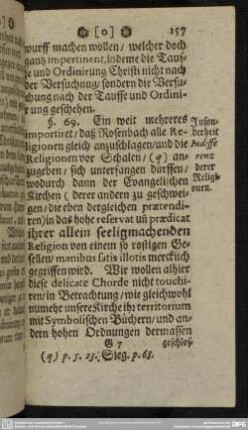 [0] 157
wurff machen wollen/ welcher doch
gantz impertinent, indeme die Tauf-
fe und Ordinirung Christi nicht nach
der Versuchung/ sondern die Versu-
chung nach der Tauffe und Ordini-
rung geschehen.
§. 69. Ein weit mehreres
importiret/ daß Rosenbach alle Re-
ligionen gleich anzuschlagen/ und die
Religionen vor Schalen/ (q) an-
zugeben/ sich unterfangen durffen/
wodurch dann der Evangelischen
Kirchen (derer andern zu geschwei-
gen/ die eben dergleichen prætendi-
ren) in das hohe reservat uñ prædicat
ihrer allein seeligmachenden
Religion von einem so rostigen Ge-
sellen/ manibus satis illotis mercklich
gegriffen wird. Wir wollen alhier
diese delicate Chorde nicht touchi-
ren/ in Betrachtung/ wie gleichwohl
nu mehr unsere Kirche ihr territorium
mit Symbolischen Büchern/ und an-
dern hohen Ordnungen dermassen
G 7 geschloß
(q) p. 5. 23. Sieg. p. 68.
Inson-
derheit
Indiffe
renz
derer
Religi
onen.